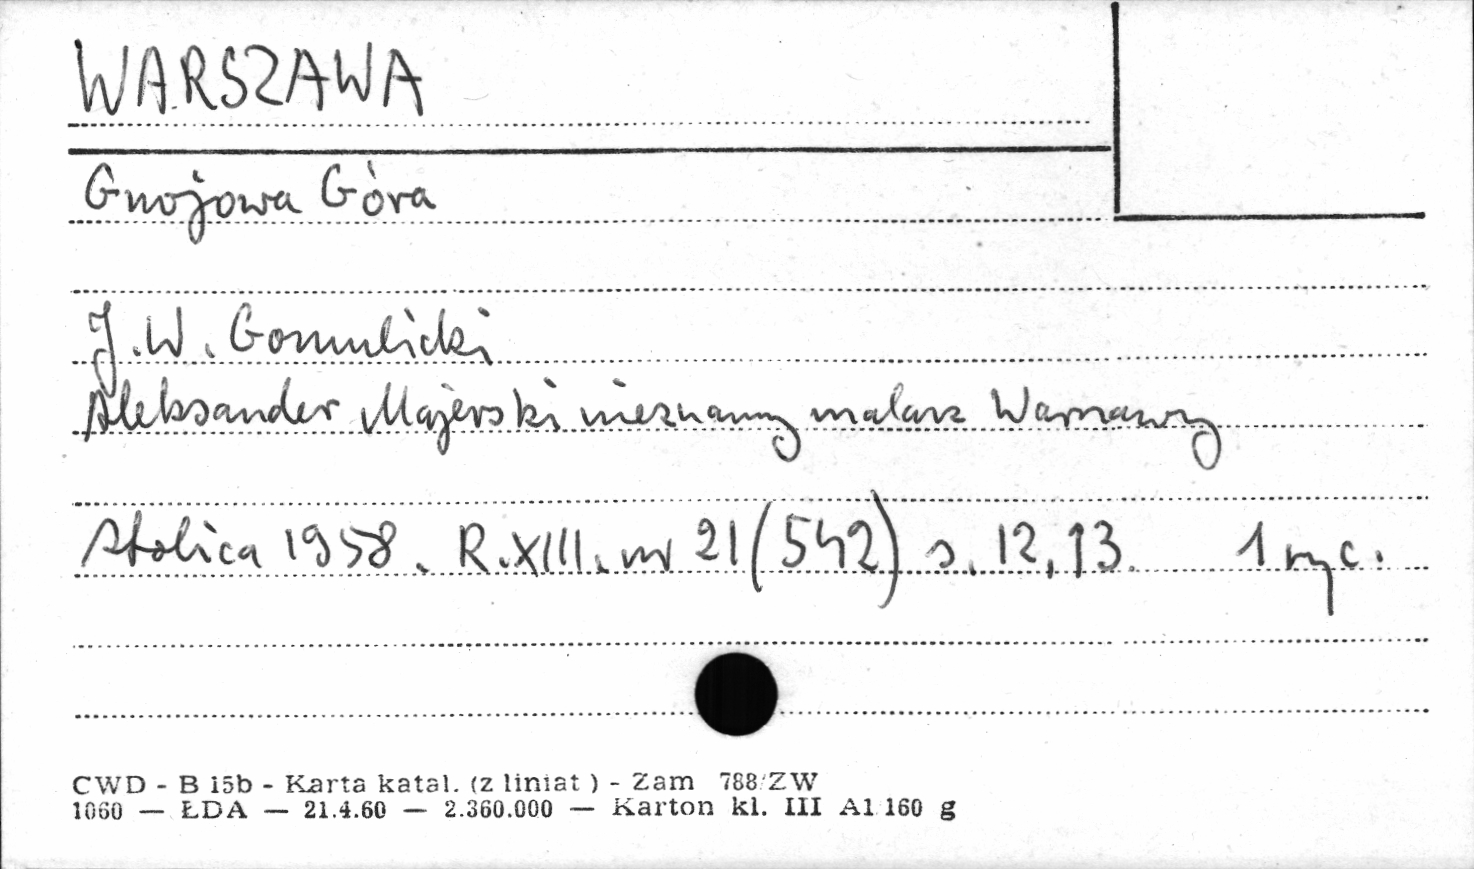 WARSZAWA
Gnojowa Góra
J.W. Gomulicki
Aleksander Majerski nieznany malarz Warszawy
Stolica 1958. R.XIII. nr 21(542) s. 12, 13. 1 ryc.
CWD - B 15b - Karta katal. (z liniat ) - Zam 788/ZW
1060 — ŁDA — 21.4.60 — 2.360.000 — Karton kl. III A1 160 g